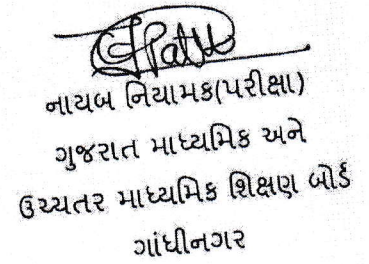 નાયબ નિયામક(પરીક્ષા)
ગુજરાત માધ્યમિક અને
ઉચ્ચતર માધ્યમિક શિક્ષણ બોર્ડ
ગાંધીનગર